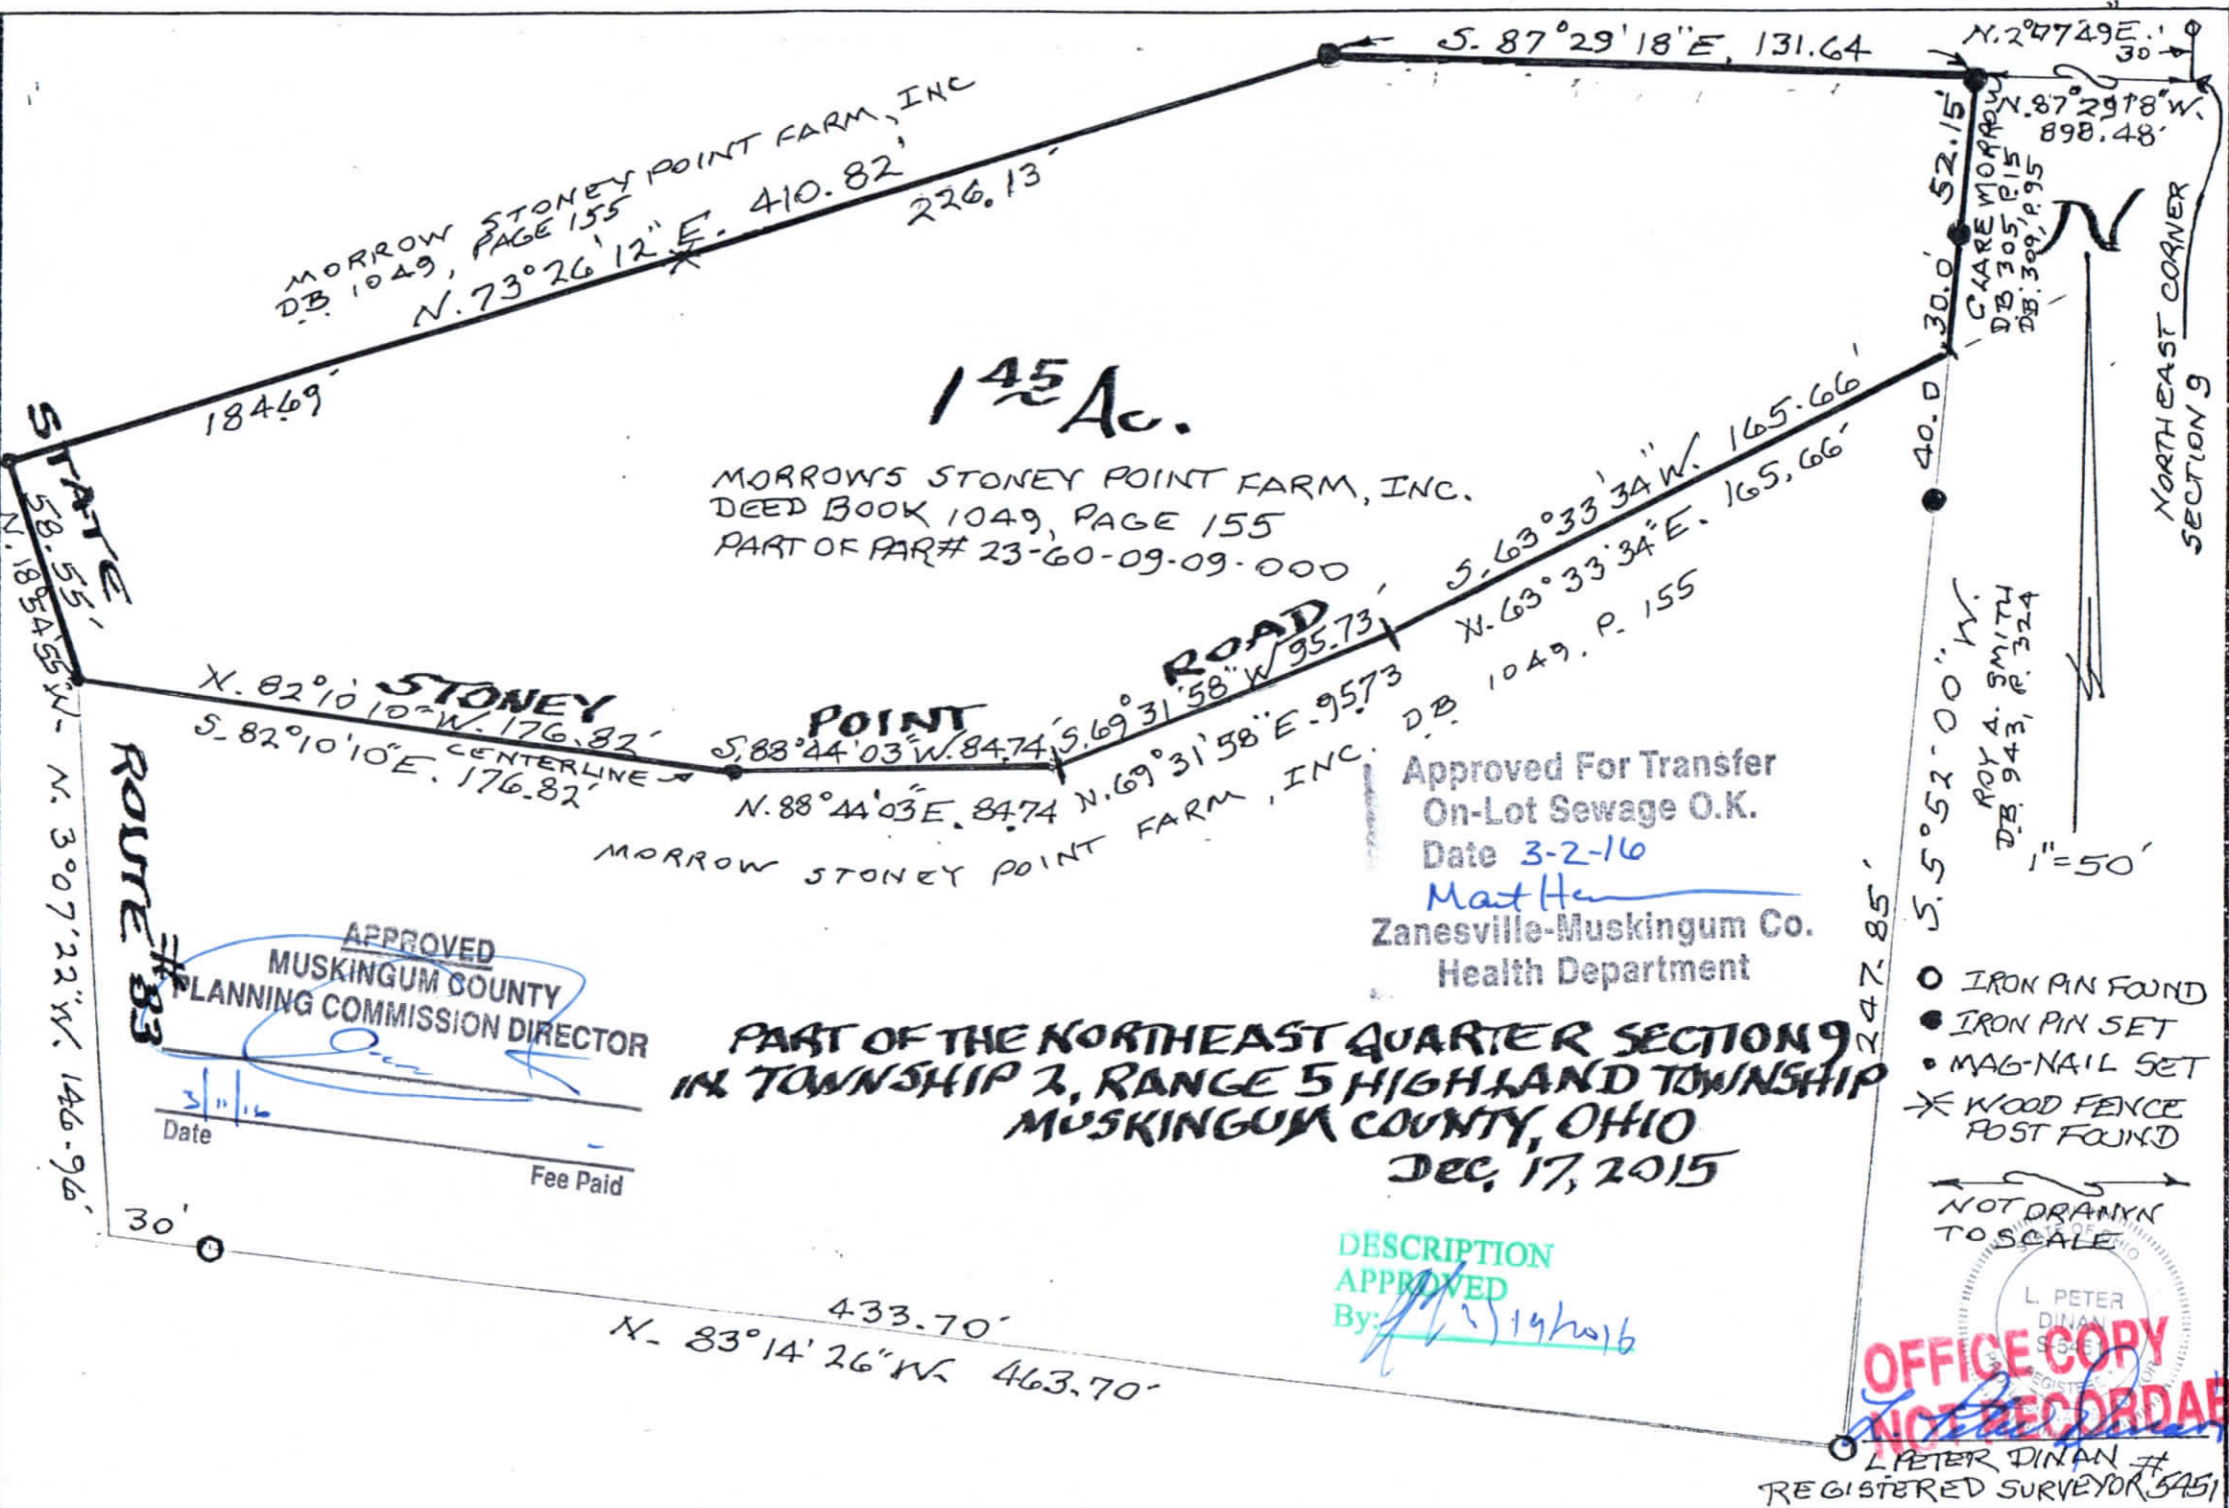 S. 87°29'18"E. 131.64
N. 2°07'49E.'
30
N. 87°29'18"W.
898.48'
MORROW STONEY POINT FARM, INC
DB 1049, PAGE 155
N. 73°26'12"E. 410.82'
226.13'
184.69'
52.15'
30.0'
40.0
CLARE MORROW
DB 305, P.15
DB. 309, P.95
N
NORTHEAST CORNER
SECTION 9
1 45 Ac.
MORROWS STONEY POINT FARM, INC.
DEED BOOK 1049, PAGE 155
PART OF PAR# 23-60-09-09-000
STATE
ROUTE # 83
58.55'
N. 18°54'55"W.
N. 3°07'22"W. 146.96'
STONEY POINT ROAD
N. 82°10'10"W. 176.82'
S. 82°10'10"E. 176.82'
CENTERLINE
S. 88°44'03"W. 84.74'
N. 88°44'03"E. 84.74
S. 69°31'58"W 95.73'
N. 69°31'58"E. 95.73
S. 63°33'34"W. 165.66'
N. 63°33'34"E. 165.66'
MORROW STONEY POINT FARM, INC. DB 1049, P. 155
S. 5°52'00"W.
247.85'
ROY A. SMITH
DB. 943, P. 324
1"=50'
Approved For Transfer
On-Lot Sewage O.K.
Date 3-2-16
Zanesville-Muskingum Co.
Health Department
APPROVED
MUSKINGUM COUNTY
PLANNING COMMISSION DIRECTOR
3/11/16
Date
Fee Paid
PART OF THE NORTHEAST QUARTER SECTION 9
IN TOWNSHIP 2, RANGE 5 HIGHLAND TOWNSHIP
MUSKINGUM COUNTY, OHIO
DEC. 17, 2015
IRON PIN FOUND
IRON PIN SET
MAG-NAIL SET
WOOD FENCE
POST FOUND
NOT DRAWN
TO SCALE
30'
433.70'
N. 83°14'26"W. 463.70'
DESCRIPTION
APPROVED
By:
STATE OF OHIO
L. PETER
DINAN
S-5451
OFFICE COPY
NOT RECORDAB
L PETER DINAN #
REGISTERED SURVEYOR 5451